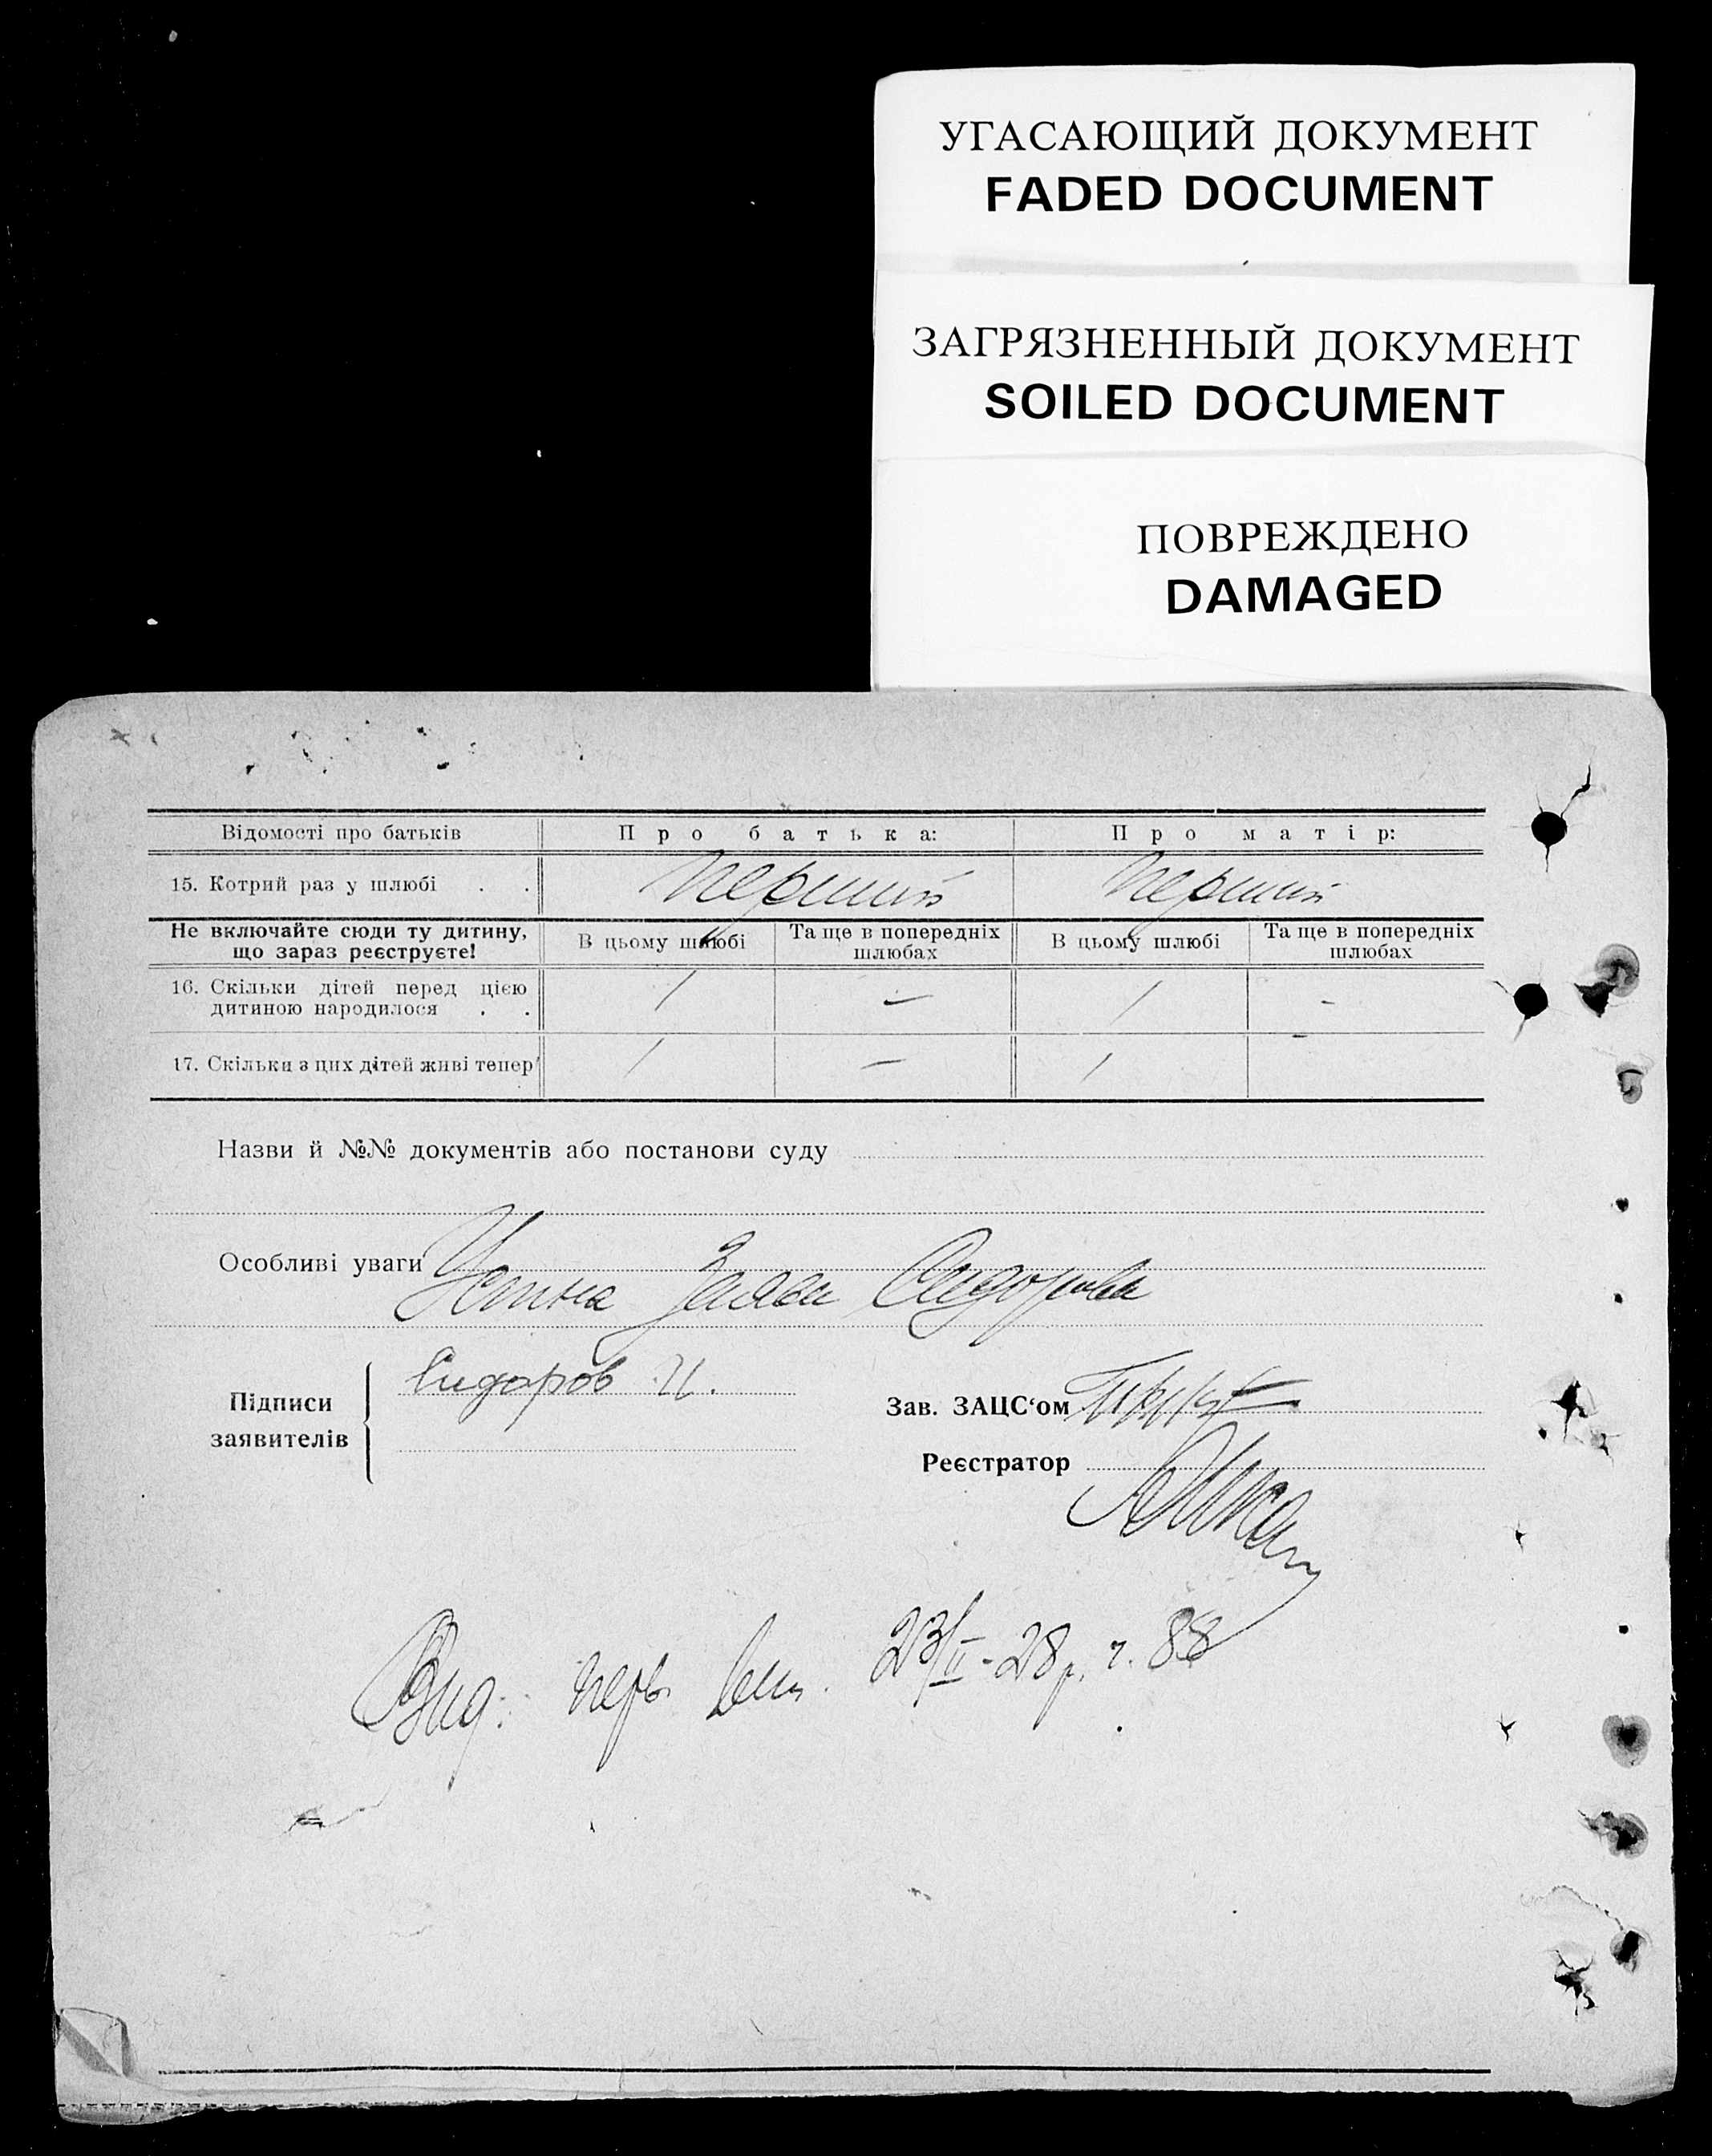 УГАСАЮЩИЙ ДОКУМЕНТ
FADED DOCUMENT
ЗАГРЯЗНЕННЫЙ ДОКУМЕНТ
SOILED DOCUMENT
ПОВРЕЖДЕНО
DAMAGED
Відомості про батьків Про батька: Про матір:
15. Котрий раз у шлюбі . . перший перший
Не включайте сюди ту дитину, що зараз реєструєте! В цьому шлюбі Та ще в попередніх шлюбах В цьому шлюбі Та ще в попередніх шлюбах
16. Скільки дітей перед цією
дитиною народилося . . 1 — 1 -
17. Скільки з цих дітей живі тепер 1 — 1 -
Назви й №№ документів або постанови суду
Особливі уваги Устна Заява Сидорова
Підписи заявителів Сидоров И.
Зав. ЗАЦС‘ом
Реєстратор
Вид. 23/II-28р. ч. 88